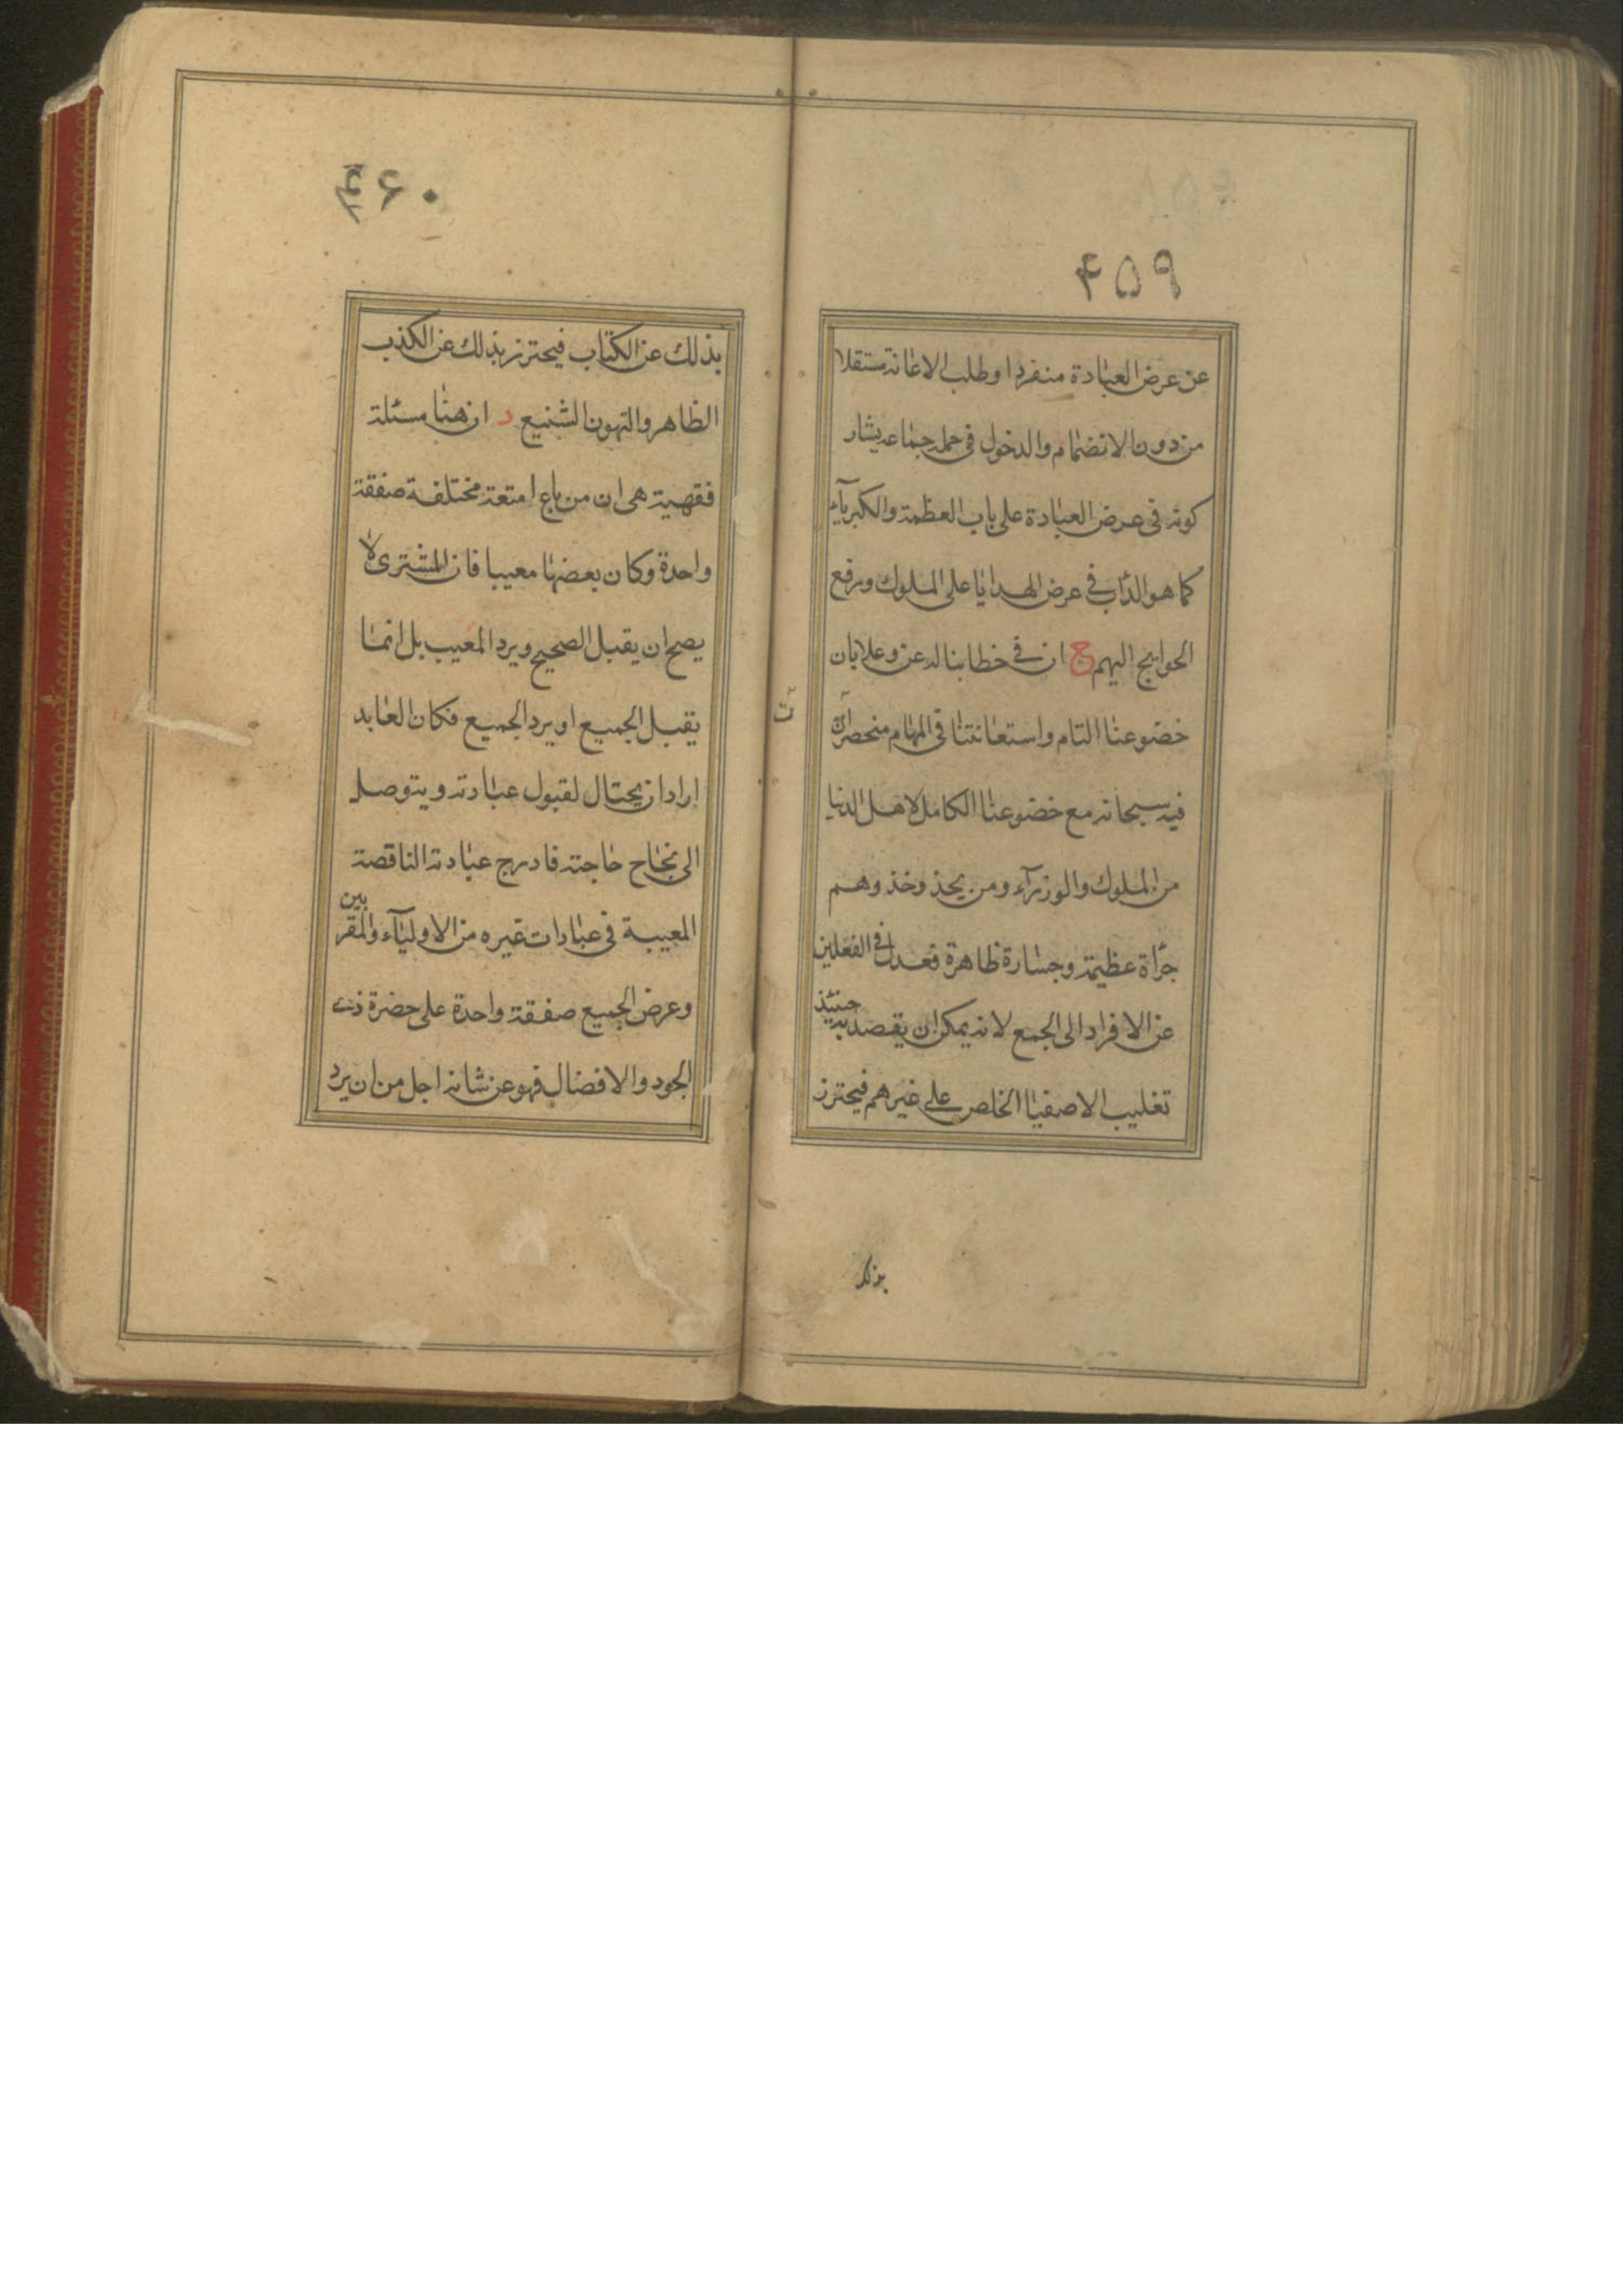 ۴۵۹
عن عرض العبادة منفردا وطلب الاعانة مستقلا
من دون الانضمام والدخول فى جملة جماعة يشار
كونه فى عرض العبادة على باب العظمة والكبرياء
كما هو الدأب فى عرض الهدايا على الملوك ورفع
الحوايج اليهم ج ان فى خطابنا له عز وعلا بان
خضوعنا التام واستعانتنا فى المهام منحصران
فيه سبحانه مع خضوعنا الكامل لاهل الدنيا
من الملوك والوزرآء ومن يحذ وخذ وهم
جرأة عظيمة وجسارة ظاهرة فعدل فى الفعلين
عن الافراد الى الجمع لانه يمكن ان يقصد به حينئذ
تغليب الاصفيا الخلص على غيرهم فيحترز
بذلك
۴۶۰
بذلك عن الكتاب فيحترز بذلك عن الكذب
الظاهر والتهون الشنيع د ان هنا مسئلة
فقهية هى ان من باع امتعة مختلفة صفقة
واحدة وكان بعضها معيبا فان المشترى لا
يصح ان يقبل الصحيح ويرد المعيب بل انما
يقبل الجميع او يرد الجميع فكان العابد
اراد ان يحتال لقبول عبادته ويتوصل
الى نجاح حاجته فادرج عبادته الناقصة
المعيبة فى عبادات غيره من الاوليآء والمقربين
وعرض الجميع صفقة واحدة على حضرة ذى
الجود والافضال فهو عز شانه اجل من ان يرد